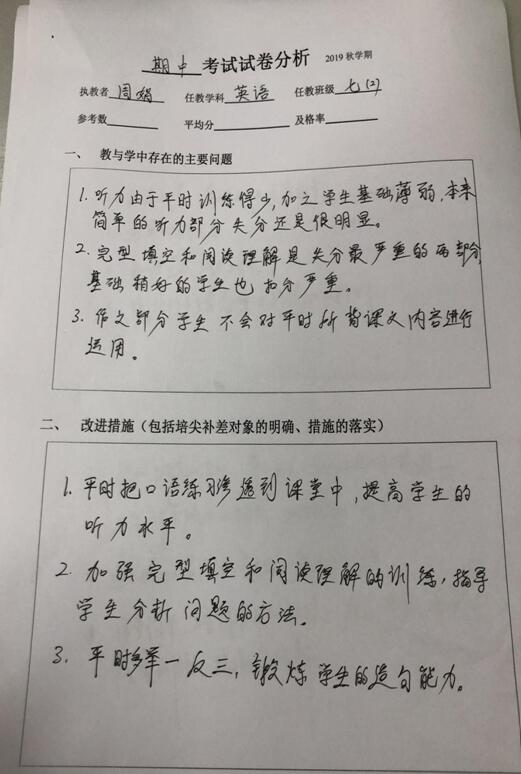 期中 考试试卷分析 2019 秋学期
执教者 周娟 任教学科 英语 任教班级 七(2)
参考数 平均分 及格率
一、 教与学中存在的主要问题
1. 听力由于平时训练得少,加之学生基础薄弱,本来
简单的听力部分失分还是很明显。
2. 完型填空和阅读理解是失分最严重的两部分,
基础稍好的学生也扣分严重。
3. 作文部分学生不会对平时所背课文内容进行
运用。
二、 改进措施(包括培尖补差对象的明确、措施的落实)
1. 平时把口语练习渗透到课堂中,提高学生的
听力水平。
2. 加强完型填空和阅读理解的训练,指导
学生分析问题的方法。
3. 平时多举一反三,锻炼学生的造句能力。